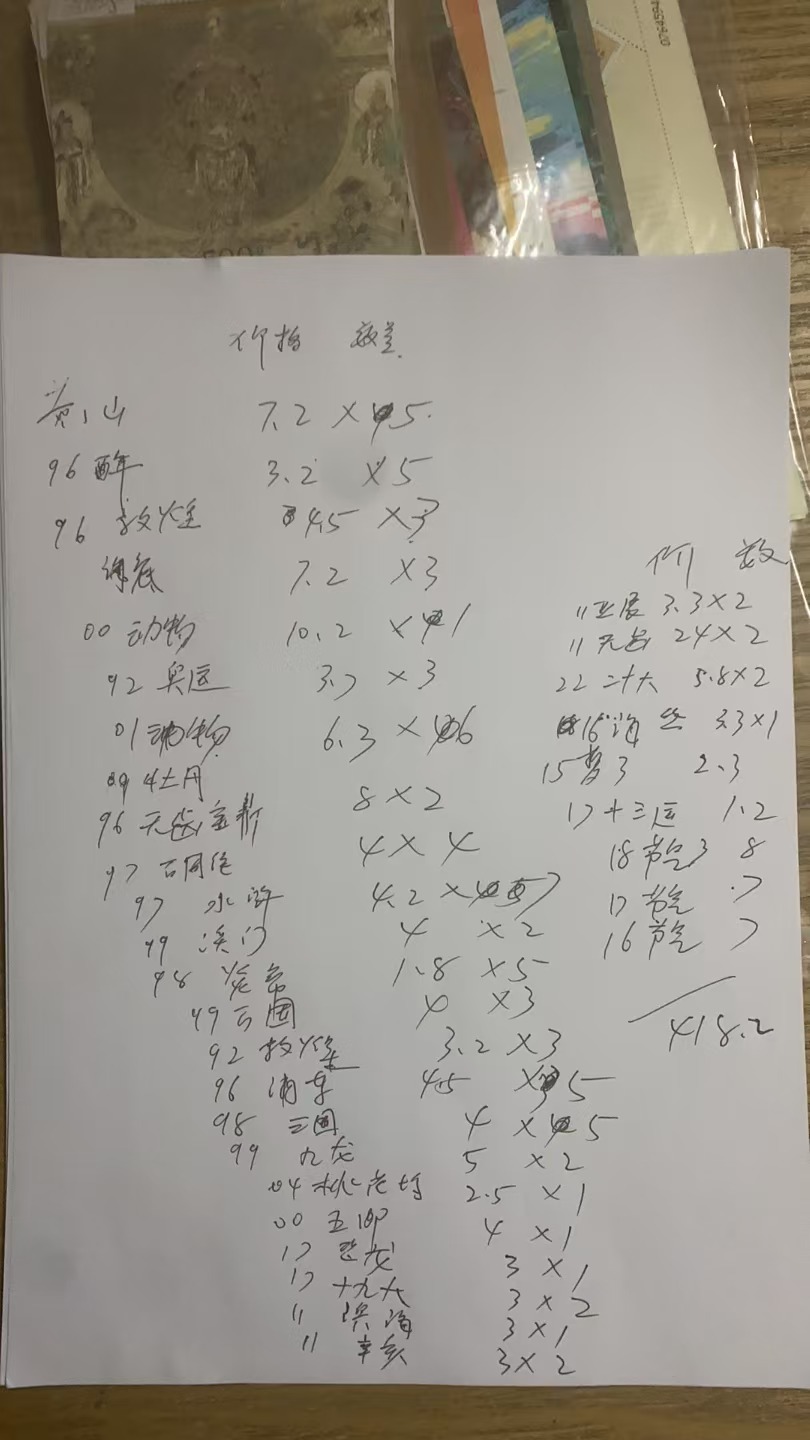 价格 数量
黄山 7.2 × 5
96 酉年 3.2 × 5
96 敦煌 4.5 × 3
7.2 × 3
00 动物 10.2 × 1
92 奥运 3.7 × 3
01 动物 6.3 × 6
09 牡丹 8 × 2
96 无齿 4 × 4
97 4.2 × 7
97 水浒 4 × 2
99 澳门 1.8 × 5
98 炎帝 4 × 3
99 3.2 × 3
92 敦煌 4.5 × 5
96 浦东 4 × 5
98 三国 5 × 2
99 九龙 2.5 × 1
04 桃花坞 4 × 1
00 3 × 1
17 恐龙 3 × 2
17 十九大 3 × 1
11 3 × 2
11 辛亥
价 数
11 亚展 3.3 × 2
11 无齿 24 × 2
22 二十大 5.8 × 2
16 海丝 3.3 × 1
15 2.3
17 十三运 1.2
18 节气 8
17 节气 7
16 节气 7
418.2